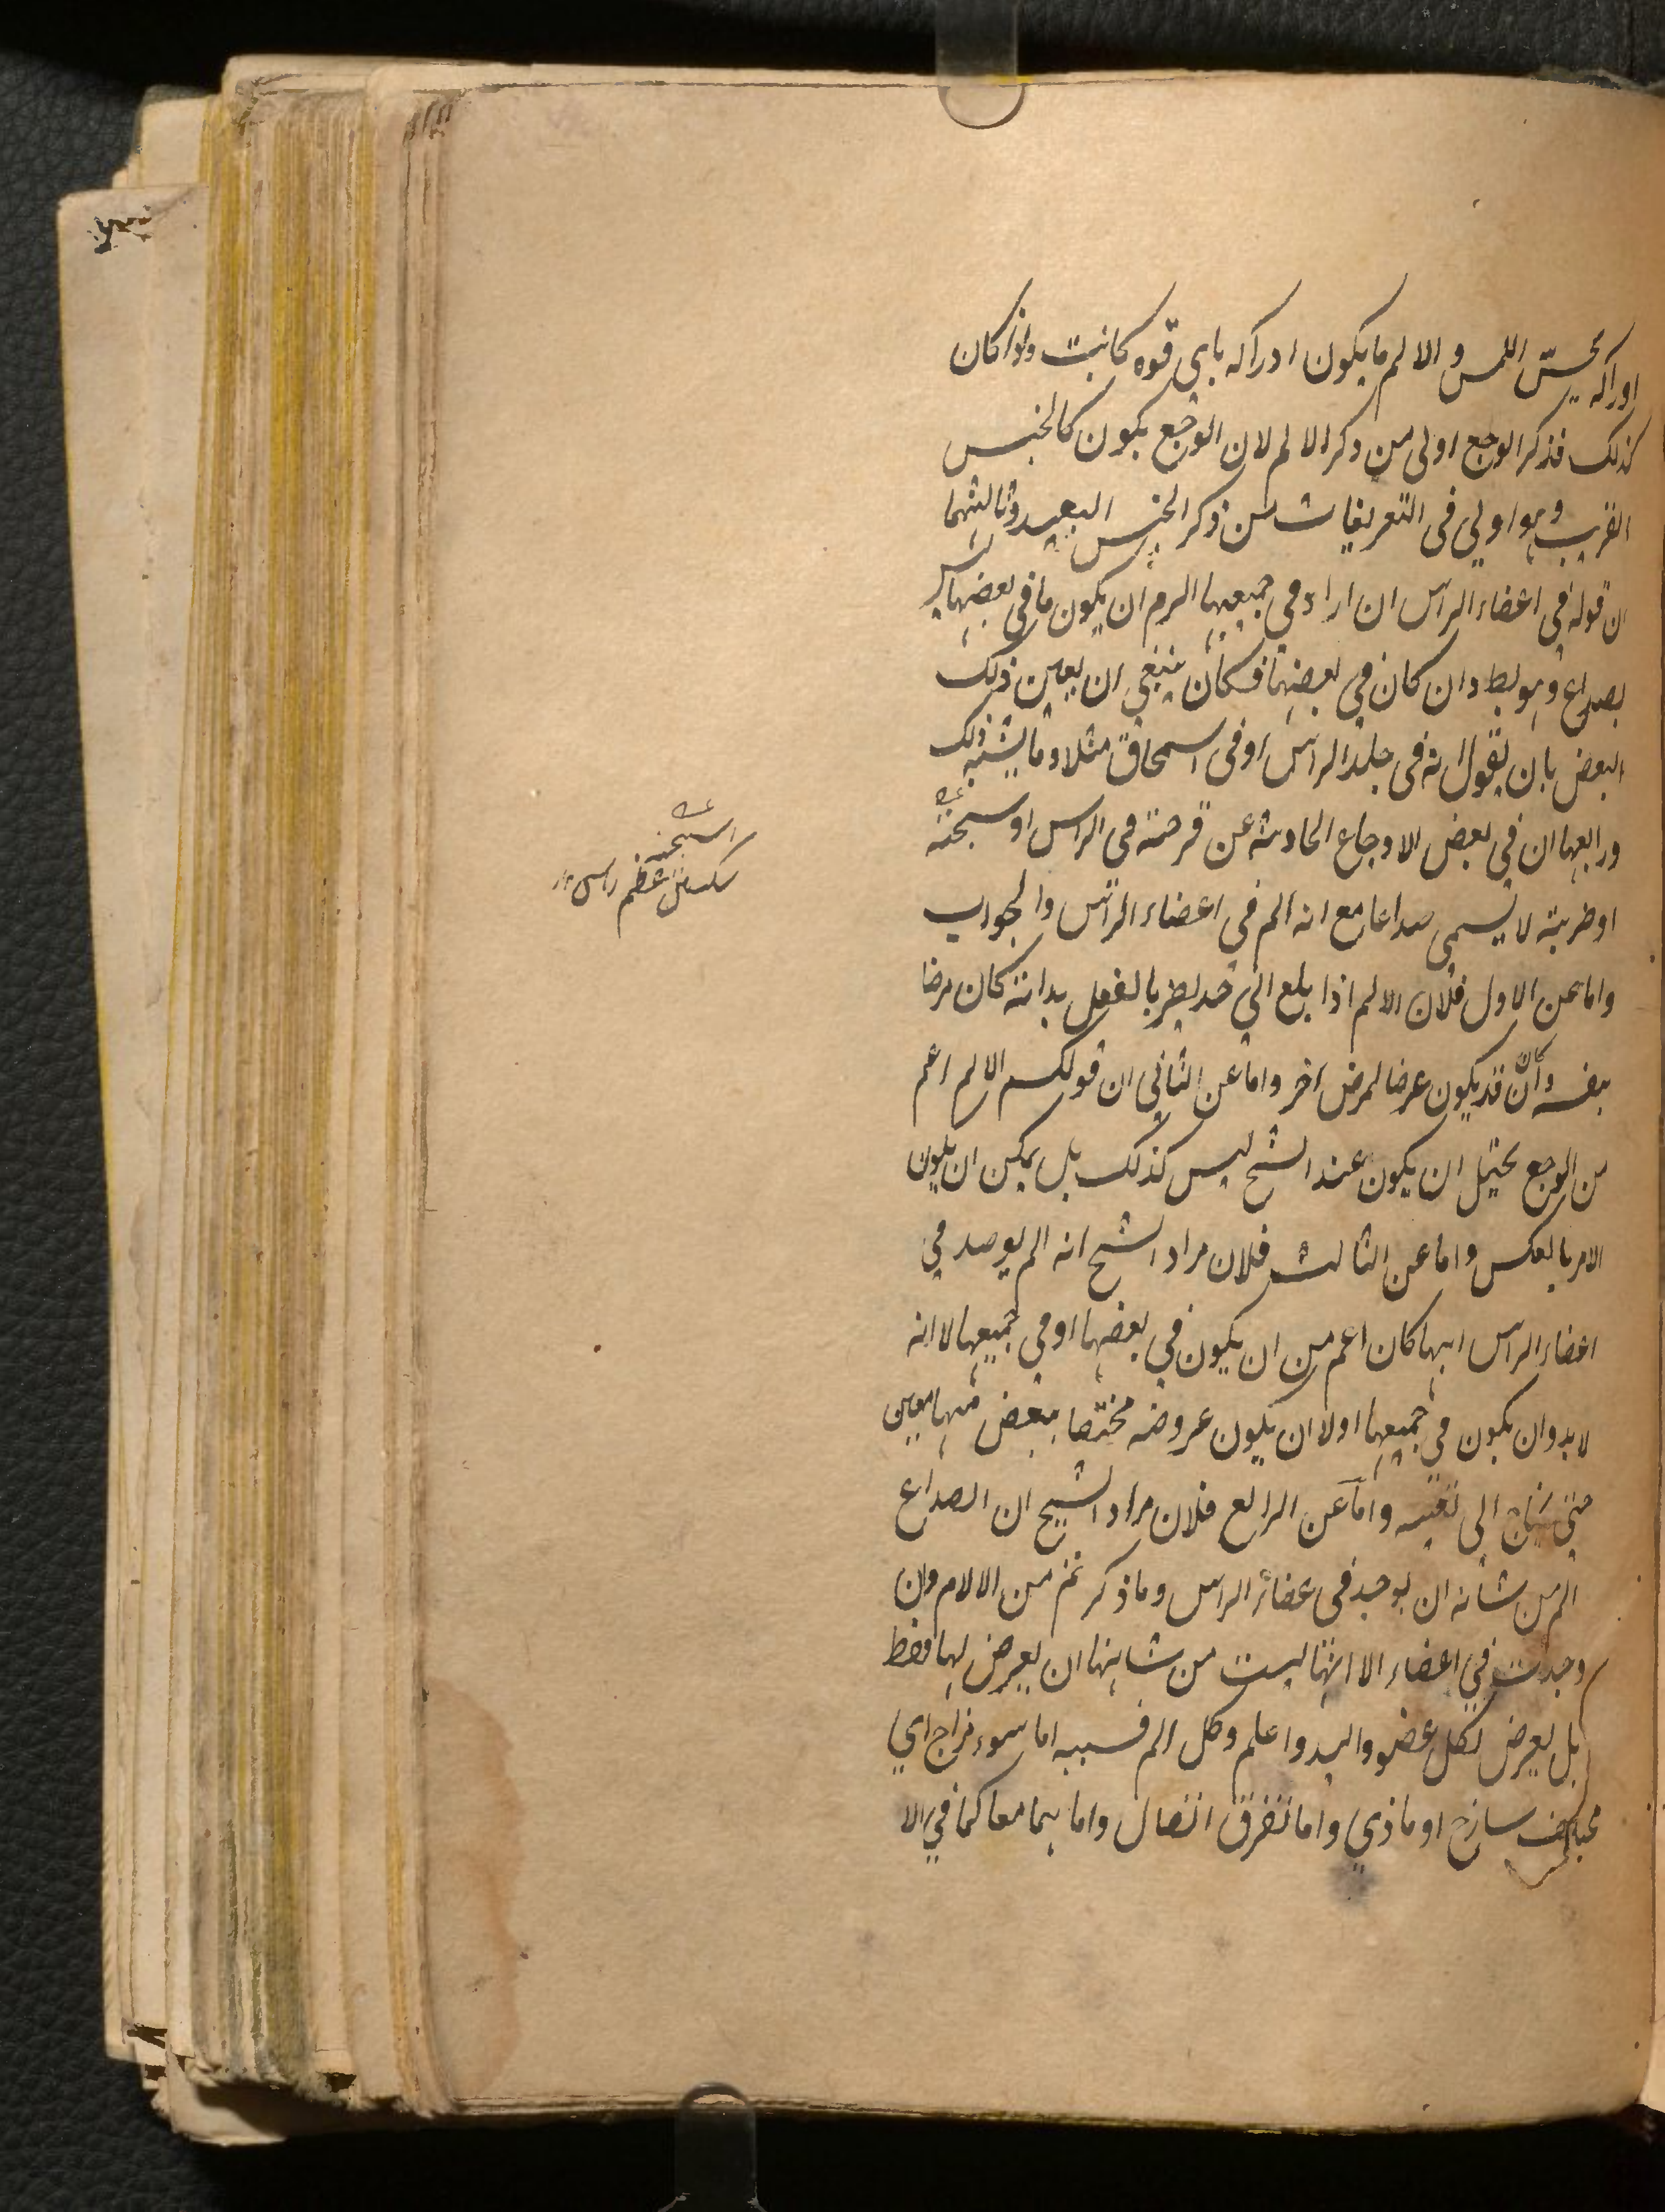 ادراكه بحسّ اللمس و الالم ما يكون ادراكه باى قوه كانت واذا كان
كذلك فذكر الوجع اولى من ذكر الالم لان الوجع يكون كالجنس
القريب وهو اولي فى التعريفات من ذكر الجنس البعيد وثالثها
ان قوله في اعضاء الراس ان اراد في جميعها الزم ان يكون ما في بعضها ليس
بصداع وهو بط وان كان في بعضها فكان ينبغي ان يعين ذلك
البعض بان يقول انه فى جلد الراس او فى السمحاق مثلا وما يشبه ذلك
ورابعها ان في بعض الاوجاع الحادثه عن قرحته في الراس او شجته
او ضربته لا يسمى صداعا مع انه الم في اعضاء الراس والجواب
واما عن الاول فلان الالم اذا بلع الي حد يضر بالفعل بدانه كان مرضا
بنفسه وان كان قد يكون عرضا لمرض آخر واما عن الثاني ان قولكم الالم اعم
من الوجع يحتمل ان يكون عند الشيخ ليس كذلك بل يمكن ان يكون
الامر بالعكس واما عن الثالث فلان مراد الشيخ انه الم يوجد في
اعضاء الراس ايها كان اعم من ان يكون في بعضها او في جميعها لا انه
لا بد وان يكون في جميعها او لا ان يكون عروضه مختصا ببعض منها معين
حتى يحتاج الى تعينه واما عن الرابع فلان مراد الشيخ ان الصداع
الم من شانه ان يوجد فى اعضاء الراس وما ذكرتم من الالام وان
وجدت في اعضاء الا انها ليست من شانها ان يعرض لها فقط
بل يعرض لكل عضو والله اعلم وكل الم فسببه اما سوء مزاج اي
مختلف ساذج او مادي واما تفرق اتصال واما هما معا كما في الا
الشجته
شكستن عظم راس